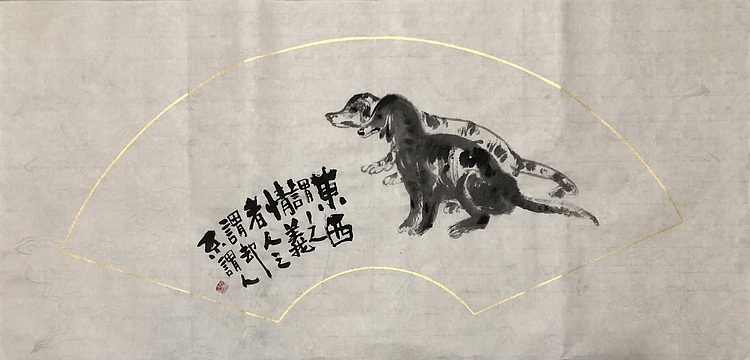 東西
謂之
情義
者人之
謂却人
謂